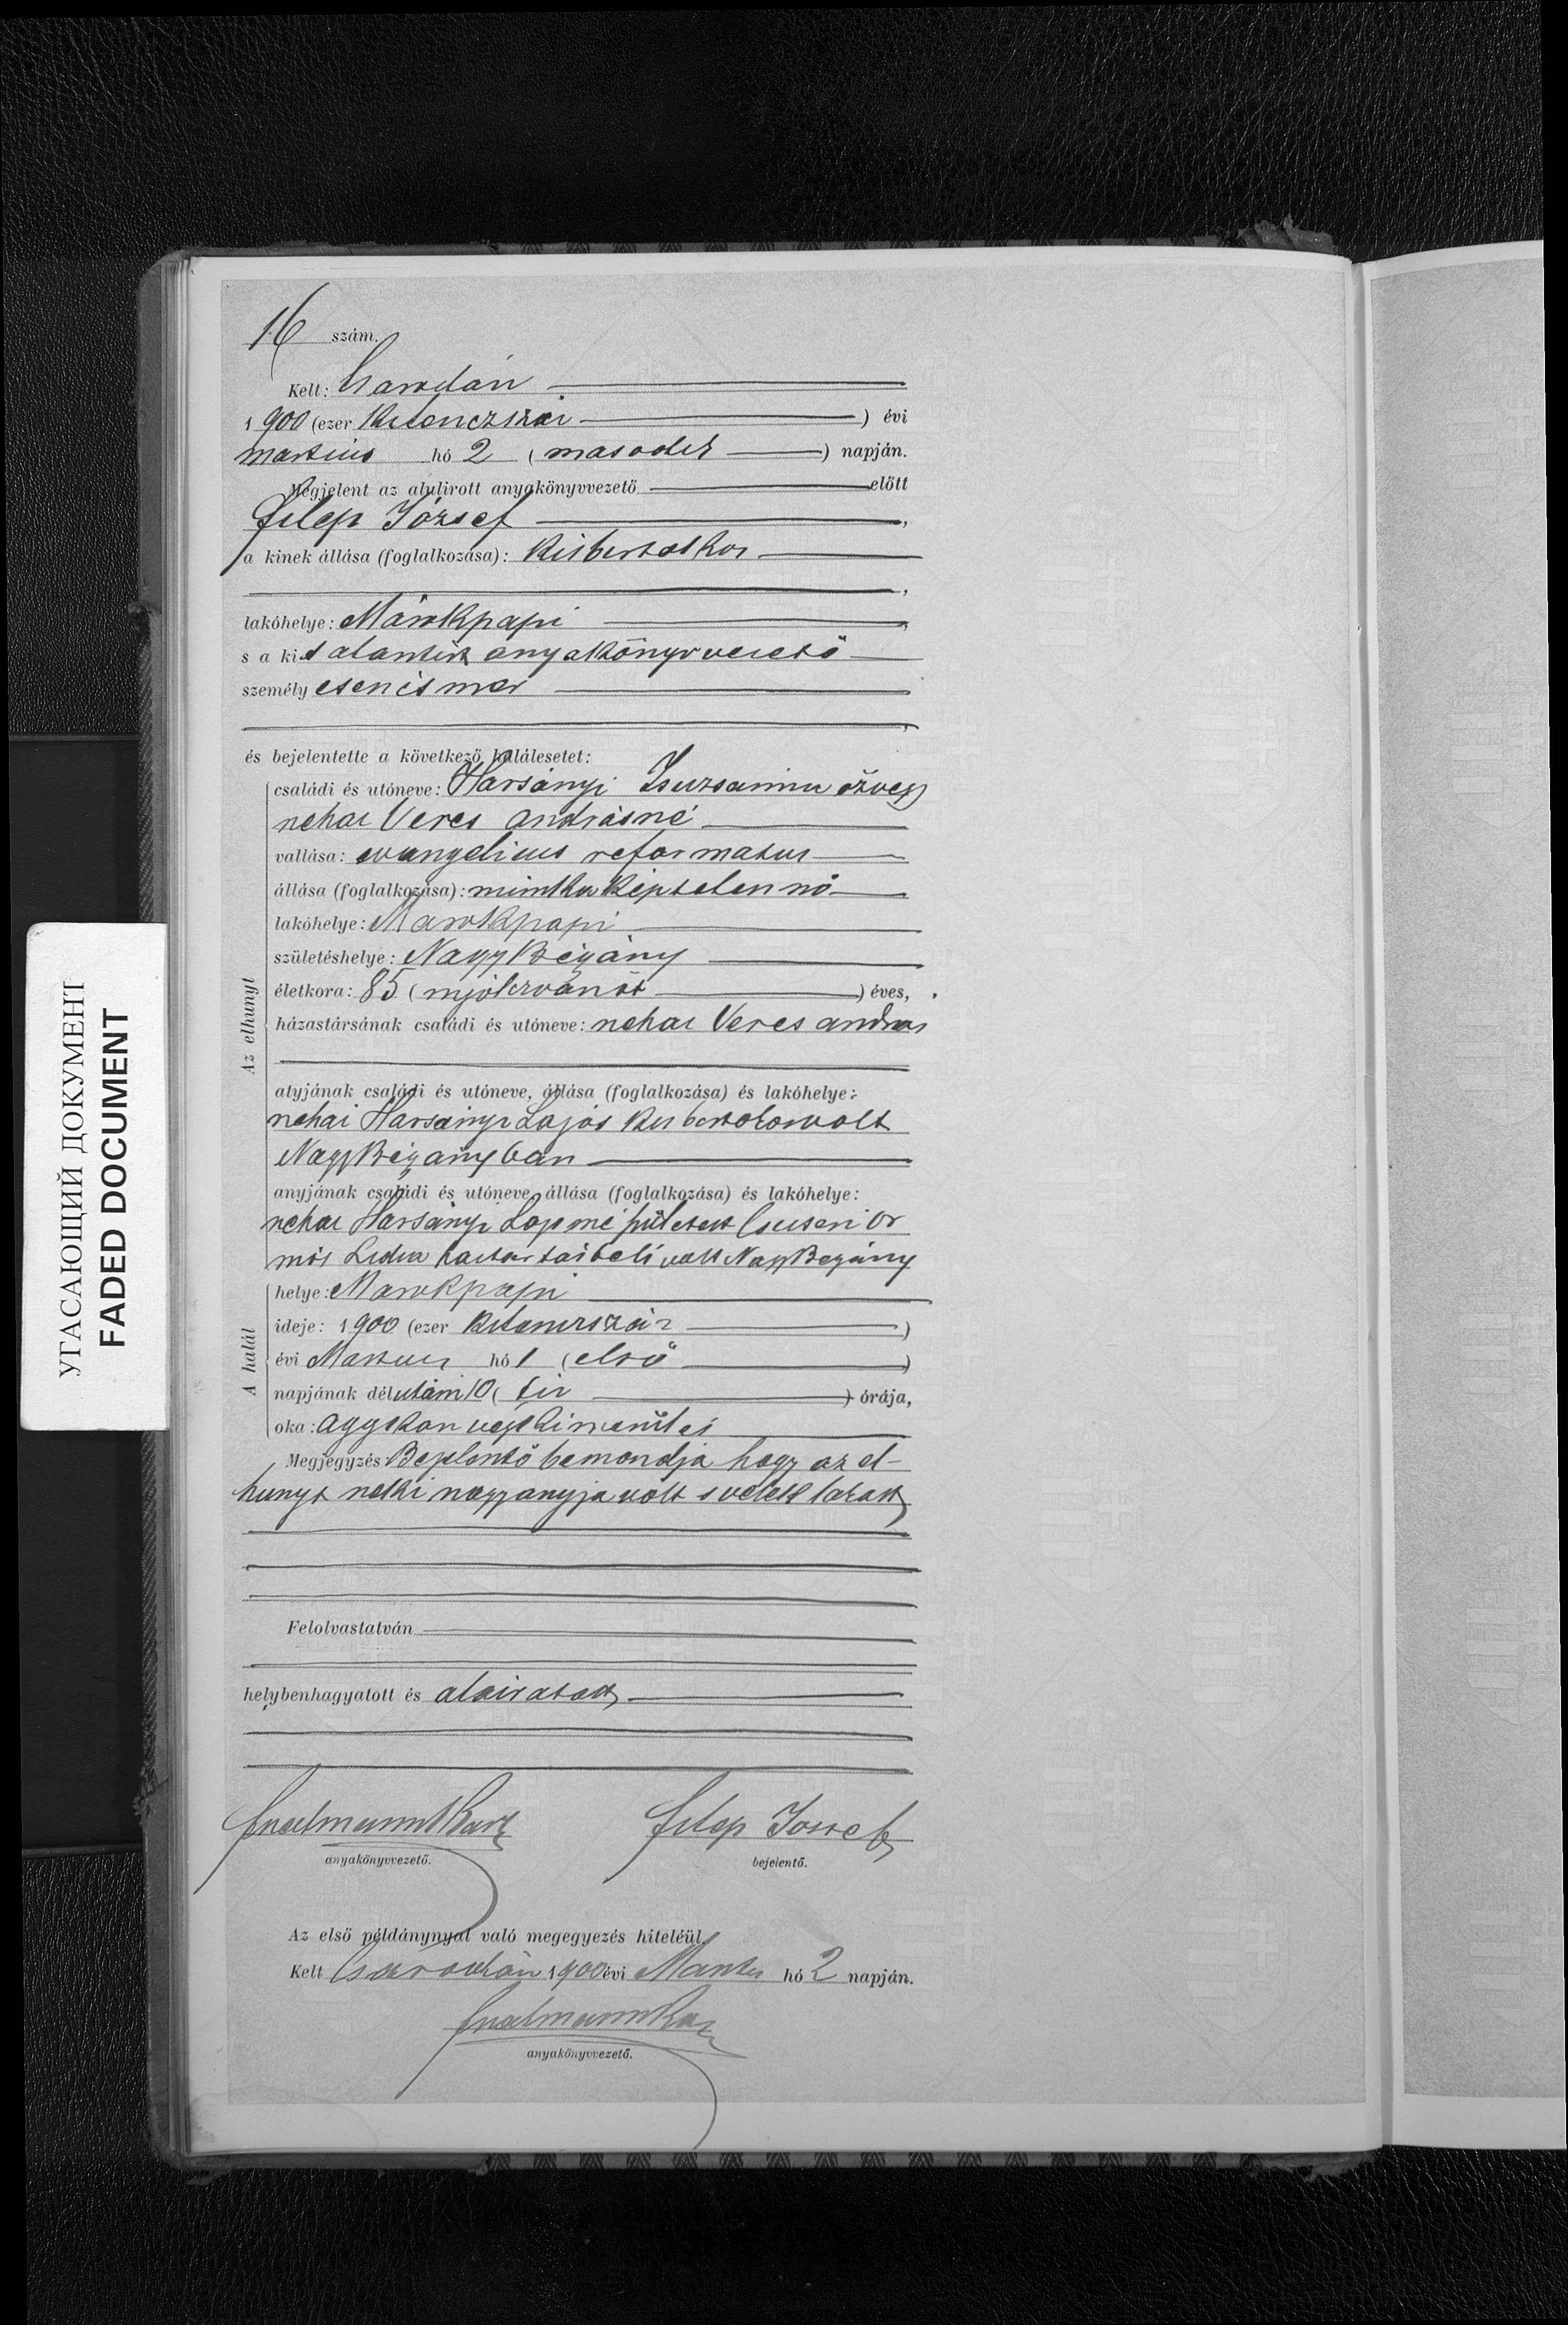 16 szám.
Kelt: Csarodán
1900 (ezer kilenczszáz) évi
martius hó 2 (masodik) napján.
Megjelent az alulirott anyakönyvvezető előtt
Filep József,
a kinek állása (foglalkozása): kisbirtokos
lakóhelye: Márokpapi
s a kit alantirt anyakönyvvezető
személyesen ismer
és bejelentette a következő halálesetet:
családi és utóneve: Harsányi Zsuzsánna özvegy
nehai Veres andrásné
vallása: evangelicus reformatus
állása (foglalkozása): munka képtelen nő
lakóhelye: Marokpapi
születéshelye: Nagy Bégány
életkora: 85 (nyolczvanöt) éves,
házastársának családi és utóneve: nehai Veres andras
atyjának családi és utóneve, állása (foglalkozása) és lakóhelye:
nehai Harsányi Lajos kisbirtokos volt
Nagy Bégányban
anyjának családi és utóneve, állása (foglalkozása) és lakóhelye:
nehai Harsányi Lajosné született Csuseni Or
mós Lidia haztartásbeli volt Nagy Begány
helye: Marokpapi
ideje: 1900 (ezer kilenczszáz)
évi Martius hó 1 (első)
napjának délután 10 (tiz) órája,
oka: aggkori végkimerülés
Megjegyzés Bejelentő bemondja hogy az el-
hunyt neki nagyanyja volt s velek lakott
Felolvastatván
helybenhagyatott és alairatott
anyakönyvvezető.
Filep Jossef
bejelentő.
Az első példánynyal való megegyezés hiteléül.
Kelt Csarodán 1900 évi Martius hó 2 napján.
anyakönyvvezető.
Az elhunyt
A halál
УГАСАЮЩИЙ ДОКУМЕНТ
FADED DOCUMENT